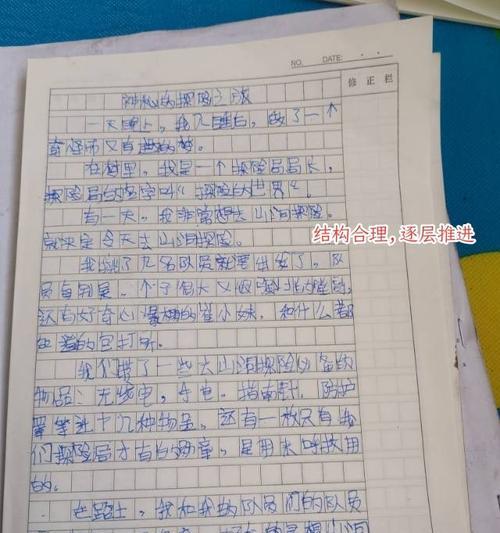 NO. DATE: · ·
修正栏
神秘的探险之旅
一天晚上，我入睡后，做了一个
奇怪而又有趣的梦。
在梦里，我是一个探险局局长，
探险局的名字叫“探险的世界”。
有一天，我非常想去山洞探险。
就决定今天去山洞探险。
结构合理，逐层推进
我挑了几名队员就要出发了。队
员有
还有好奇心爆棚的崔小妹，和什么都
的包打听。
我们带了一些大山洞探险必备的
物品：无线电，手电，指南针，防护
罩等于十几种物品，还有一枚只有我
们探险局才有的勋章，是用来呼救用
的。
在路上，我和我的队员们的队员